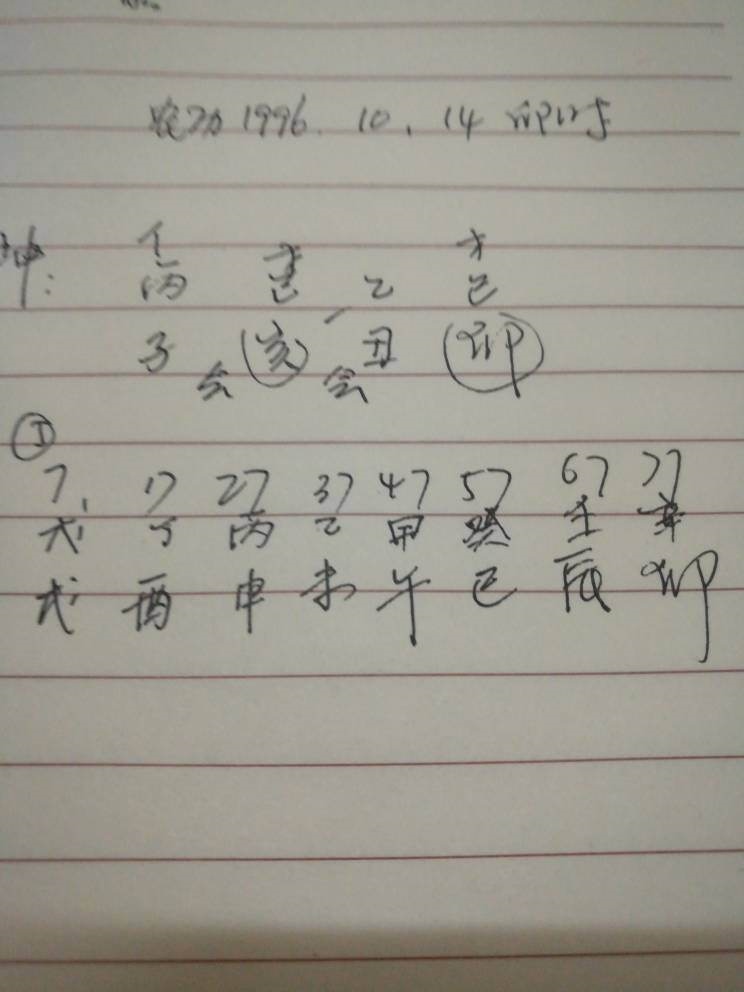 农历 1996. 10. 14 卯时
才 才
坤: 丙 己 乙 己
子 会 亥 会 丑 卯
7. 17 27 37 47 57 67 77
戊 丁 丙 乙 甲 癸 壬 辛
戌 酉 申 未 午 巳 辰 卯